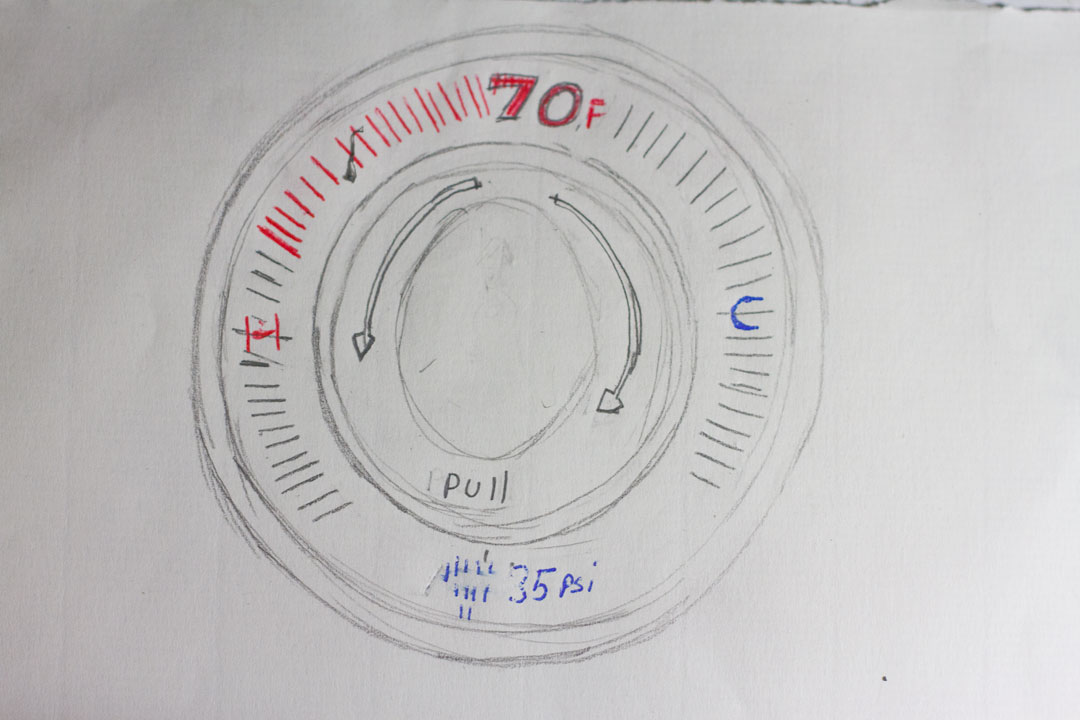 70F
H
C
pull
35 psi